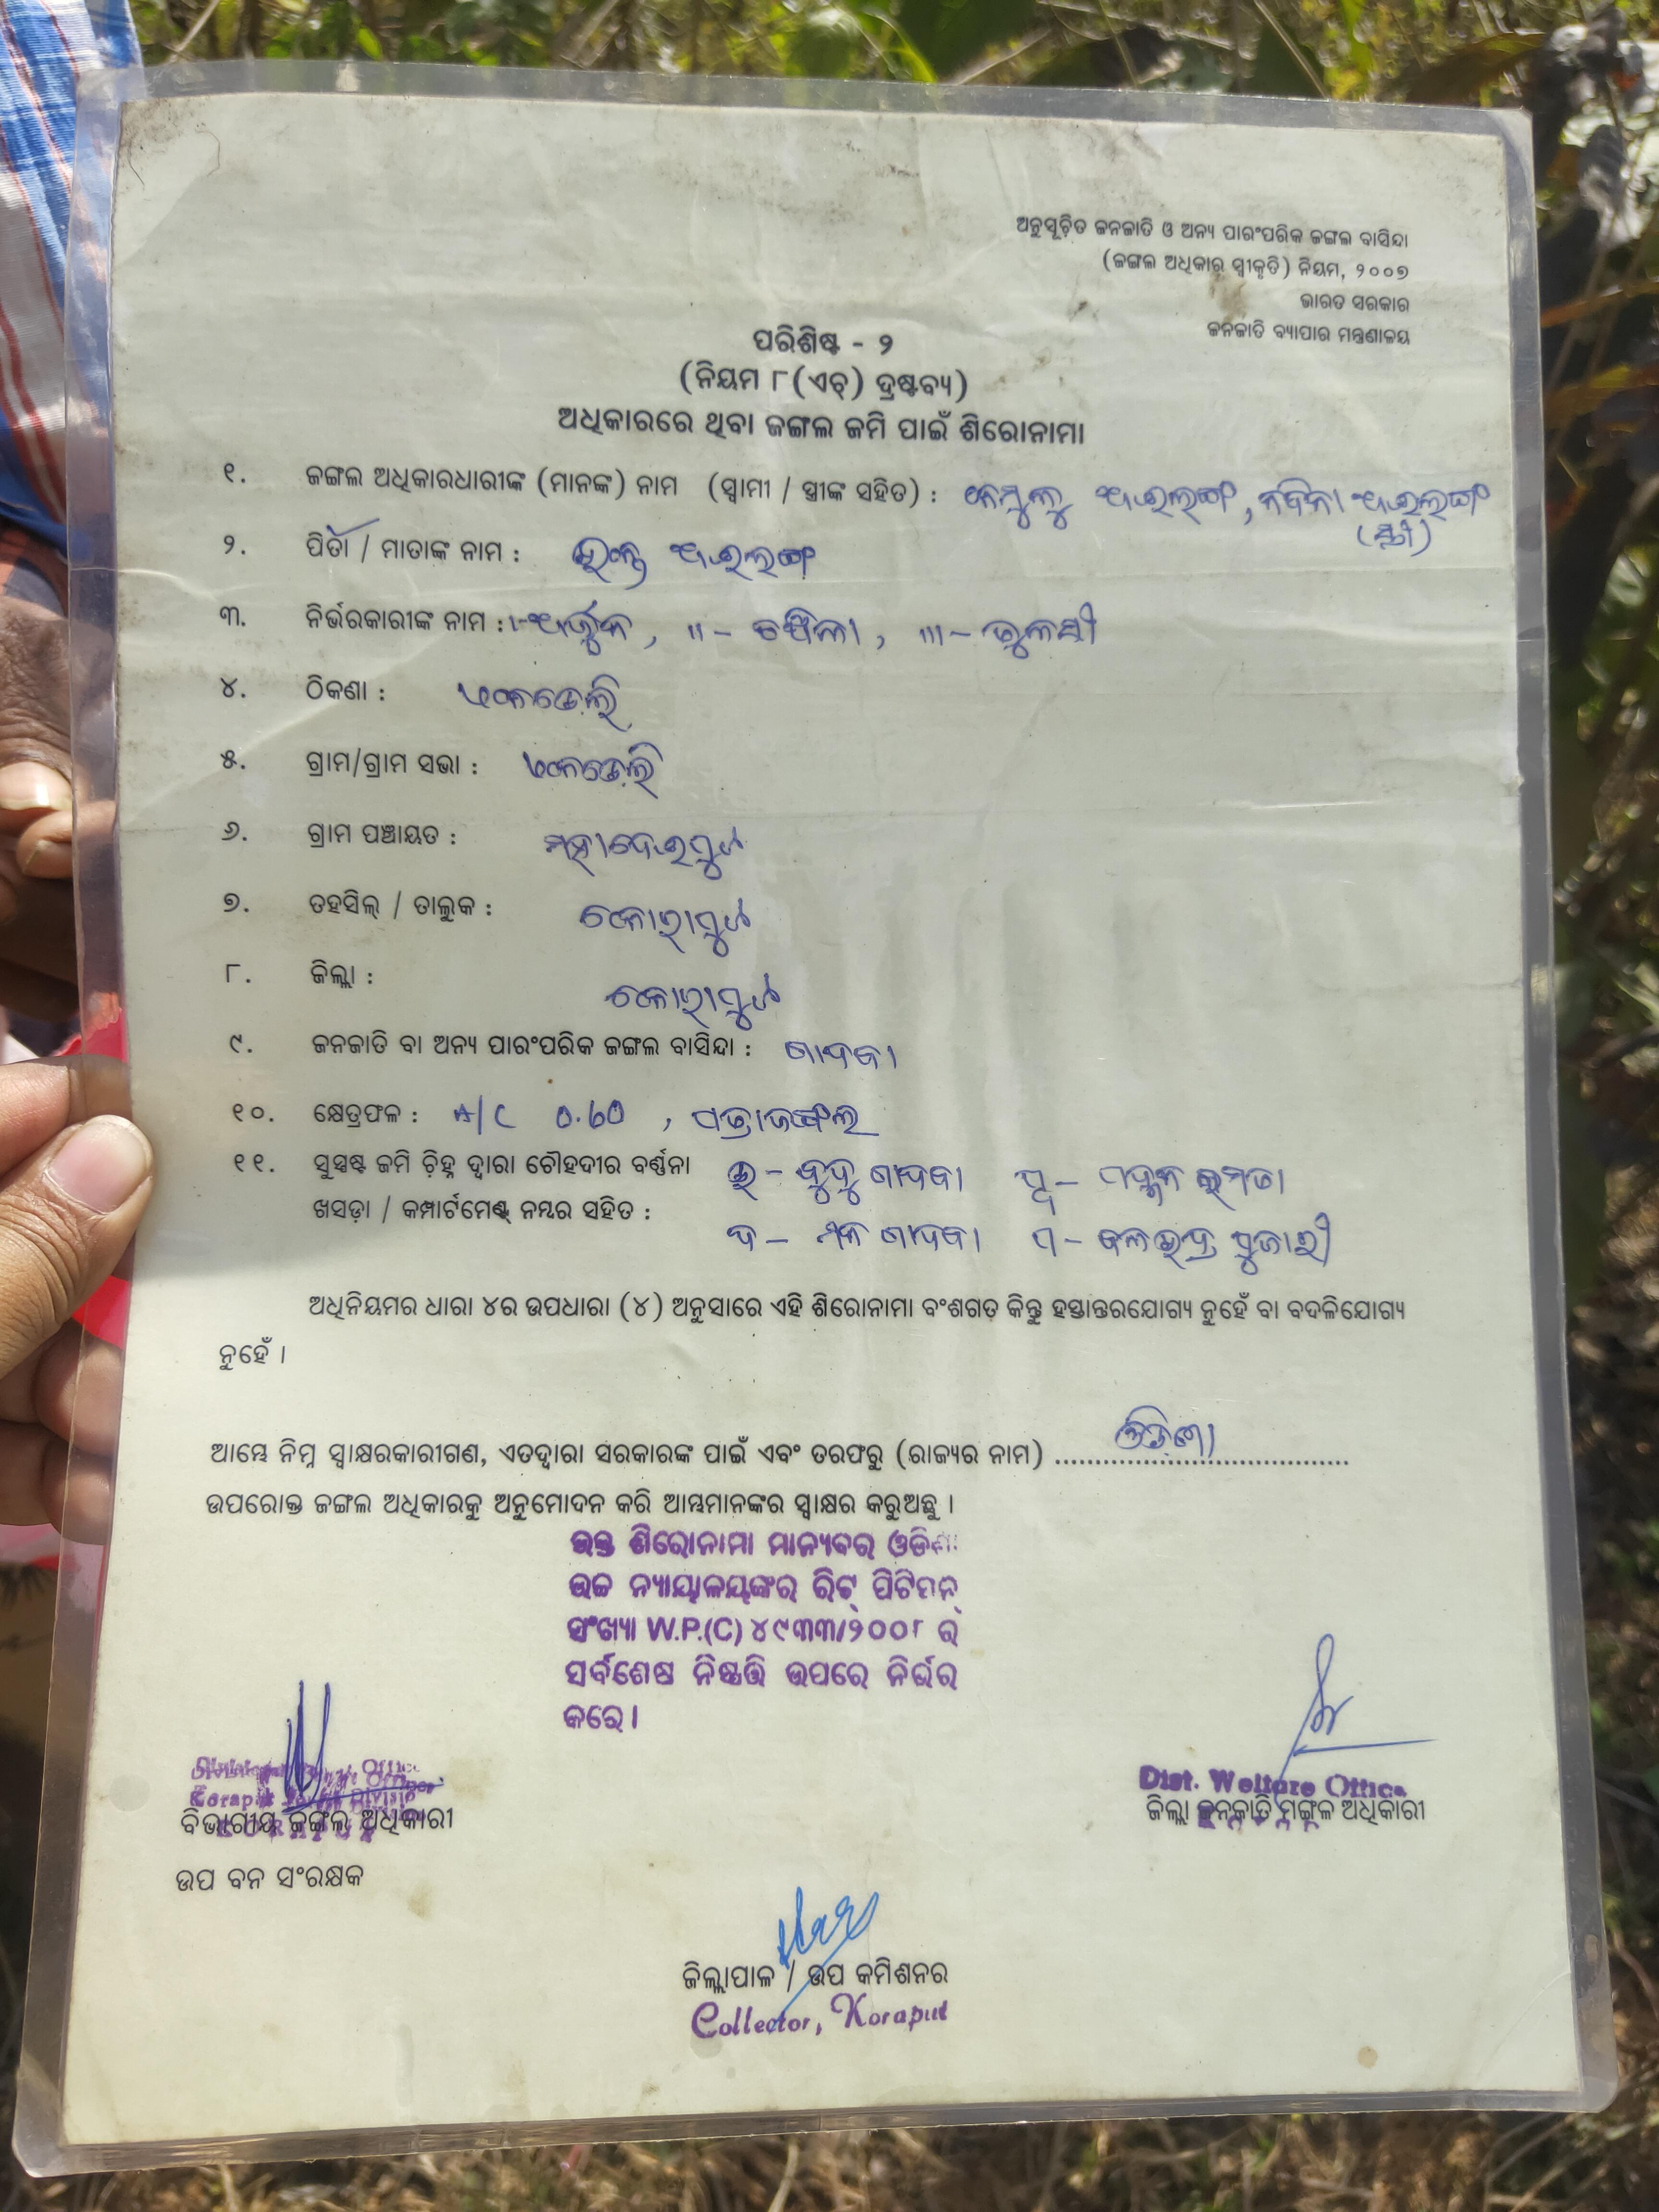 ଅନୁସୂଚିତ ଜନଜାତି ଓ ଅନ୍ୟ ପାରଂପରିକ ଜଙ୍ଗଲ ବାସିନ୍ଦା
(ଜଙ୍ଗଲ ଅଧିକାର ସ୍ୱୀକୃତି) ନିୟମ, ୨୦୦୭
ଭାରତ ସରକାର
ଜନଜାତି ବ୍ୟାପାର ମନ୍ତ୍ରଣାଳୟ
ପରିଶିଷ୍ଟ - ୨
(ନିୟମ ୮(ଏଚ୍) ଦ୍ରଷ୍ଟବ୍ୟ)
ଅଧିକାରରେ ଥିବା ଜଙ୍ଗଲ ଜମି ପାଇଁ ଶିରୋନାମା
୧. ଜଙ୍ଗଲ ଅଧିକାରଧାରୀଙ୍କ (ମାନଙ୍କ) ନାମ (ସ୍ୱାମୀ / ସ୍ତ୍ରୀଙ୍କ ସହିତ) :
(ସ୍ତ୍ରୀ)
୨. ପିତା / ମାତାଙ୍କ ନାମ :
୩. ନିର୍ଭରକାରୀଙ୍କ ନାମ : ୧- ଅର୍ଜୁନ, ୩- ତୁଳସୀ
୪. ଠିକଣା :
୫. ଗ୍ରାମ/ଗ୍ରାମ ସଭା :
୬. ଗ୍ରାମ ପଞ୍ଚାୟତ : ମହାଦେଇପୁଟ
୭. ତହସିଲ୍ / ତାଲୁକ : କୋରାପୁଟ
୮. ଜିଲ୍ଲା : କୋରାପୁଟ
୯. ଜନଜାତି ବା ଅନ୍ୟ ପାରଂପରିକ ଜଙ୍ଗଲ ବାସିନ୍ଦା : ଗାଦବା
୧୦. କ୍ଷେତ୍ରଫଳ : A/C 0.60 , ପତ୍ରାଜଙ୍ଗଲ
୧୧. ସୁସ୍ପଷ୍ଟ ଜମି ଚିହ୍ନ ଦ୍ୱାରା ଚୌହଦୀର ବର୍ଣ୍ଣନା ଉ - ବୁଦୁ ଗାଦବା ପୂ -
ଖସଡ଼ା / କମ୍ପାର୍ଟମେଣ୍ଟ୍ ନମ୍ବର ସହିତ : ଦ - ଗାଦବା ପ - ବଳଭଦ୍ର ପୁଜାରୀ
ଅଧିନିୟମର ଧାରା ୪ର ଉପଧାରା (୪) ଅନୁସାରେ ଏହି ଶିରୋନାମା ବଂଶଗତ କିନ୍ତୁ ହସ୍ତାନ୍ତରଯୋଗ୍ୟ ନୁହେଁ ବା ବଦଳିଯୋଗ୍ୟ
ନୁହେଁ ।
ଆମ୍ଭେ ନିମ୍ନ ସ୍ୱାକ୍ଷରକାରୀଗଣ, ଏତଦ୍ୱାରା ସରକାରଙ୍କ ପାଇଁ ଏବଂ ତରଫରୁ (ରାଜ୍ୟର ନାମ) ଓଡ଼ିଶା
ଉପରୋକ୍ତ ଜଙ୍ଗଲ ଅଧିକାରକୁ ଅନୁମୋଦନ କରି ଆମ୍ଭମାନଙ୍କର ସ୍ୱାକ୍ଷର କରୁଅଛୁ ।
ଉକ୍ତ ଶିରୋନାମା ମାନ୍ୟବର ଓଡିଶା
ଉଚ୍ଚ ନ୍ୟାୟାଳୟଙ୍କର ରିଟ୍ ପିଟିସନ୍
ସଂଖ୍ୟା W.P.(C) ୪୯୩୩/୨୦୦୮ ର
ସର୍ବଶେଷ ନିଷ୍ପତ୍ତି ଉପରେ ନିର୍ଭର
କରେ ।
Dist. Welfare Office
ବିଭାଗୀୟ ଜଙ୍ଗଲ ଅଧିକାରୀ
ଜିଲ୍ଲା ଜନଜାତି ମଙ୍ଗଳ ଅଧିକାରୀ
ଉପ ବନ ସଂରକ୍ଷକ
ଜିଲ୍ଲାପାଳ / ଉପ କମିଶନର
Collector, Koraput